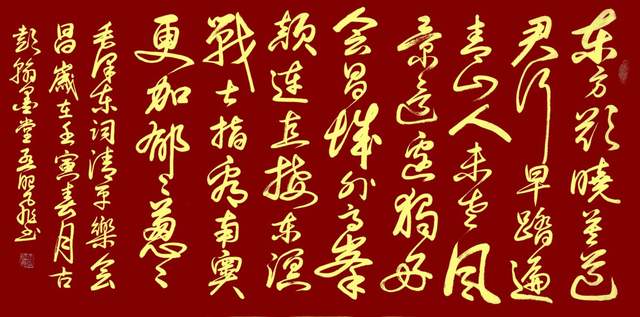 东方欲曉莫道
君行早踏遍
青山人未老风
景這边獨好
会昌城外高峰
颠連直接东溟
戰士指看南粵
更加郁〻葱〻
毛泽东词清平樂会
昌歲在壬寅春月古
彭翰墨堂书